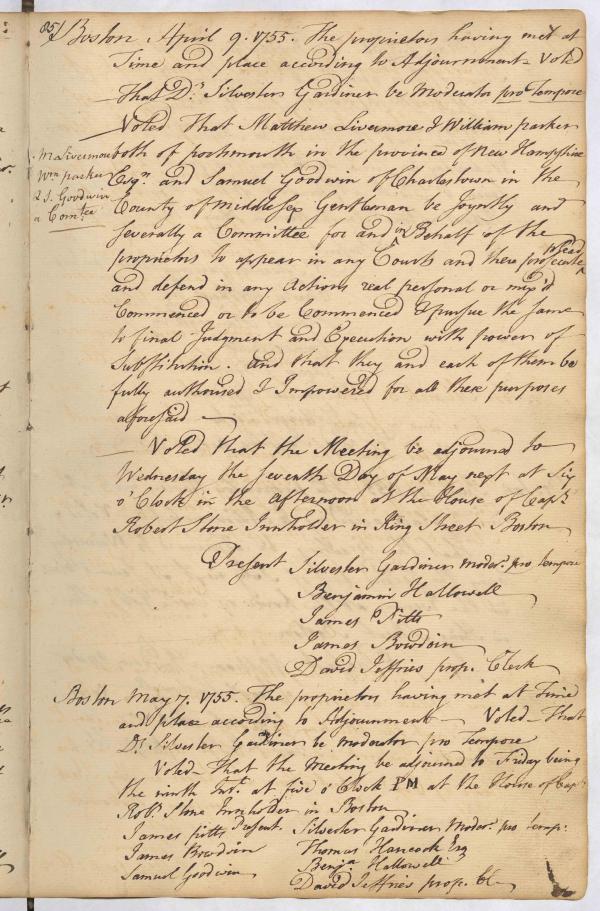 85/
Boston April 9. 1755. The proprietors having met at
Time and place according to Adjournment - Voted
That Dr. Silvester Gardiner be Moderator pro Tempore
Voted That Matthew Livermore & William parker
M Livermore
Wm parker
& S. Goodwin
a Comtee
both of portsmouth in the province of New Hampshire
Esqrs and Samuel Goodwin of Charlestown in the
County of Middlesex Gentleman be Joyntly and
Severally a Committee for and in Behalf of the
proprietors to appear in any Courts and there plead prosecute
and defend in any Actions real personal or mix'd
Commenced or to be Commenced & pursue the same
to final Judgment and Execution with power of
Substitution. And that they and each of them be
fully authorised & Impowered for all these purposes
aforesaid
Voted that the Meeting be adjourned to
Wednesday the seventh Day of May next at Six
o'Clock in the afternoon at the House of Capt.
Robert Stone Innholder in King Street Boston
Present Silvester Gardiner Moder. pro tempore
Benjamin Hallowell
James Pitts
James Bowdoin
David Jeffries prop. Clerk
Boston May 7. 1755. The proprietors having met at Time
and place according to Adjournment - Voted - That
Dr Silvester Gardiner be moderator pro Tempore
Voted - That the Meeting be adjourned to Friday being
the ninth Inst. at five o'Clock PM at the House of Capt.
Robt. Stone Innholder in Boston
Present. Silvester Gardiner Moder. pro temp:
James pitts
Thomas Hancock Esq
James Bowdoin
Benja Hallowell
Samuel Goodwin
David Jeffries prop. Cl